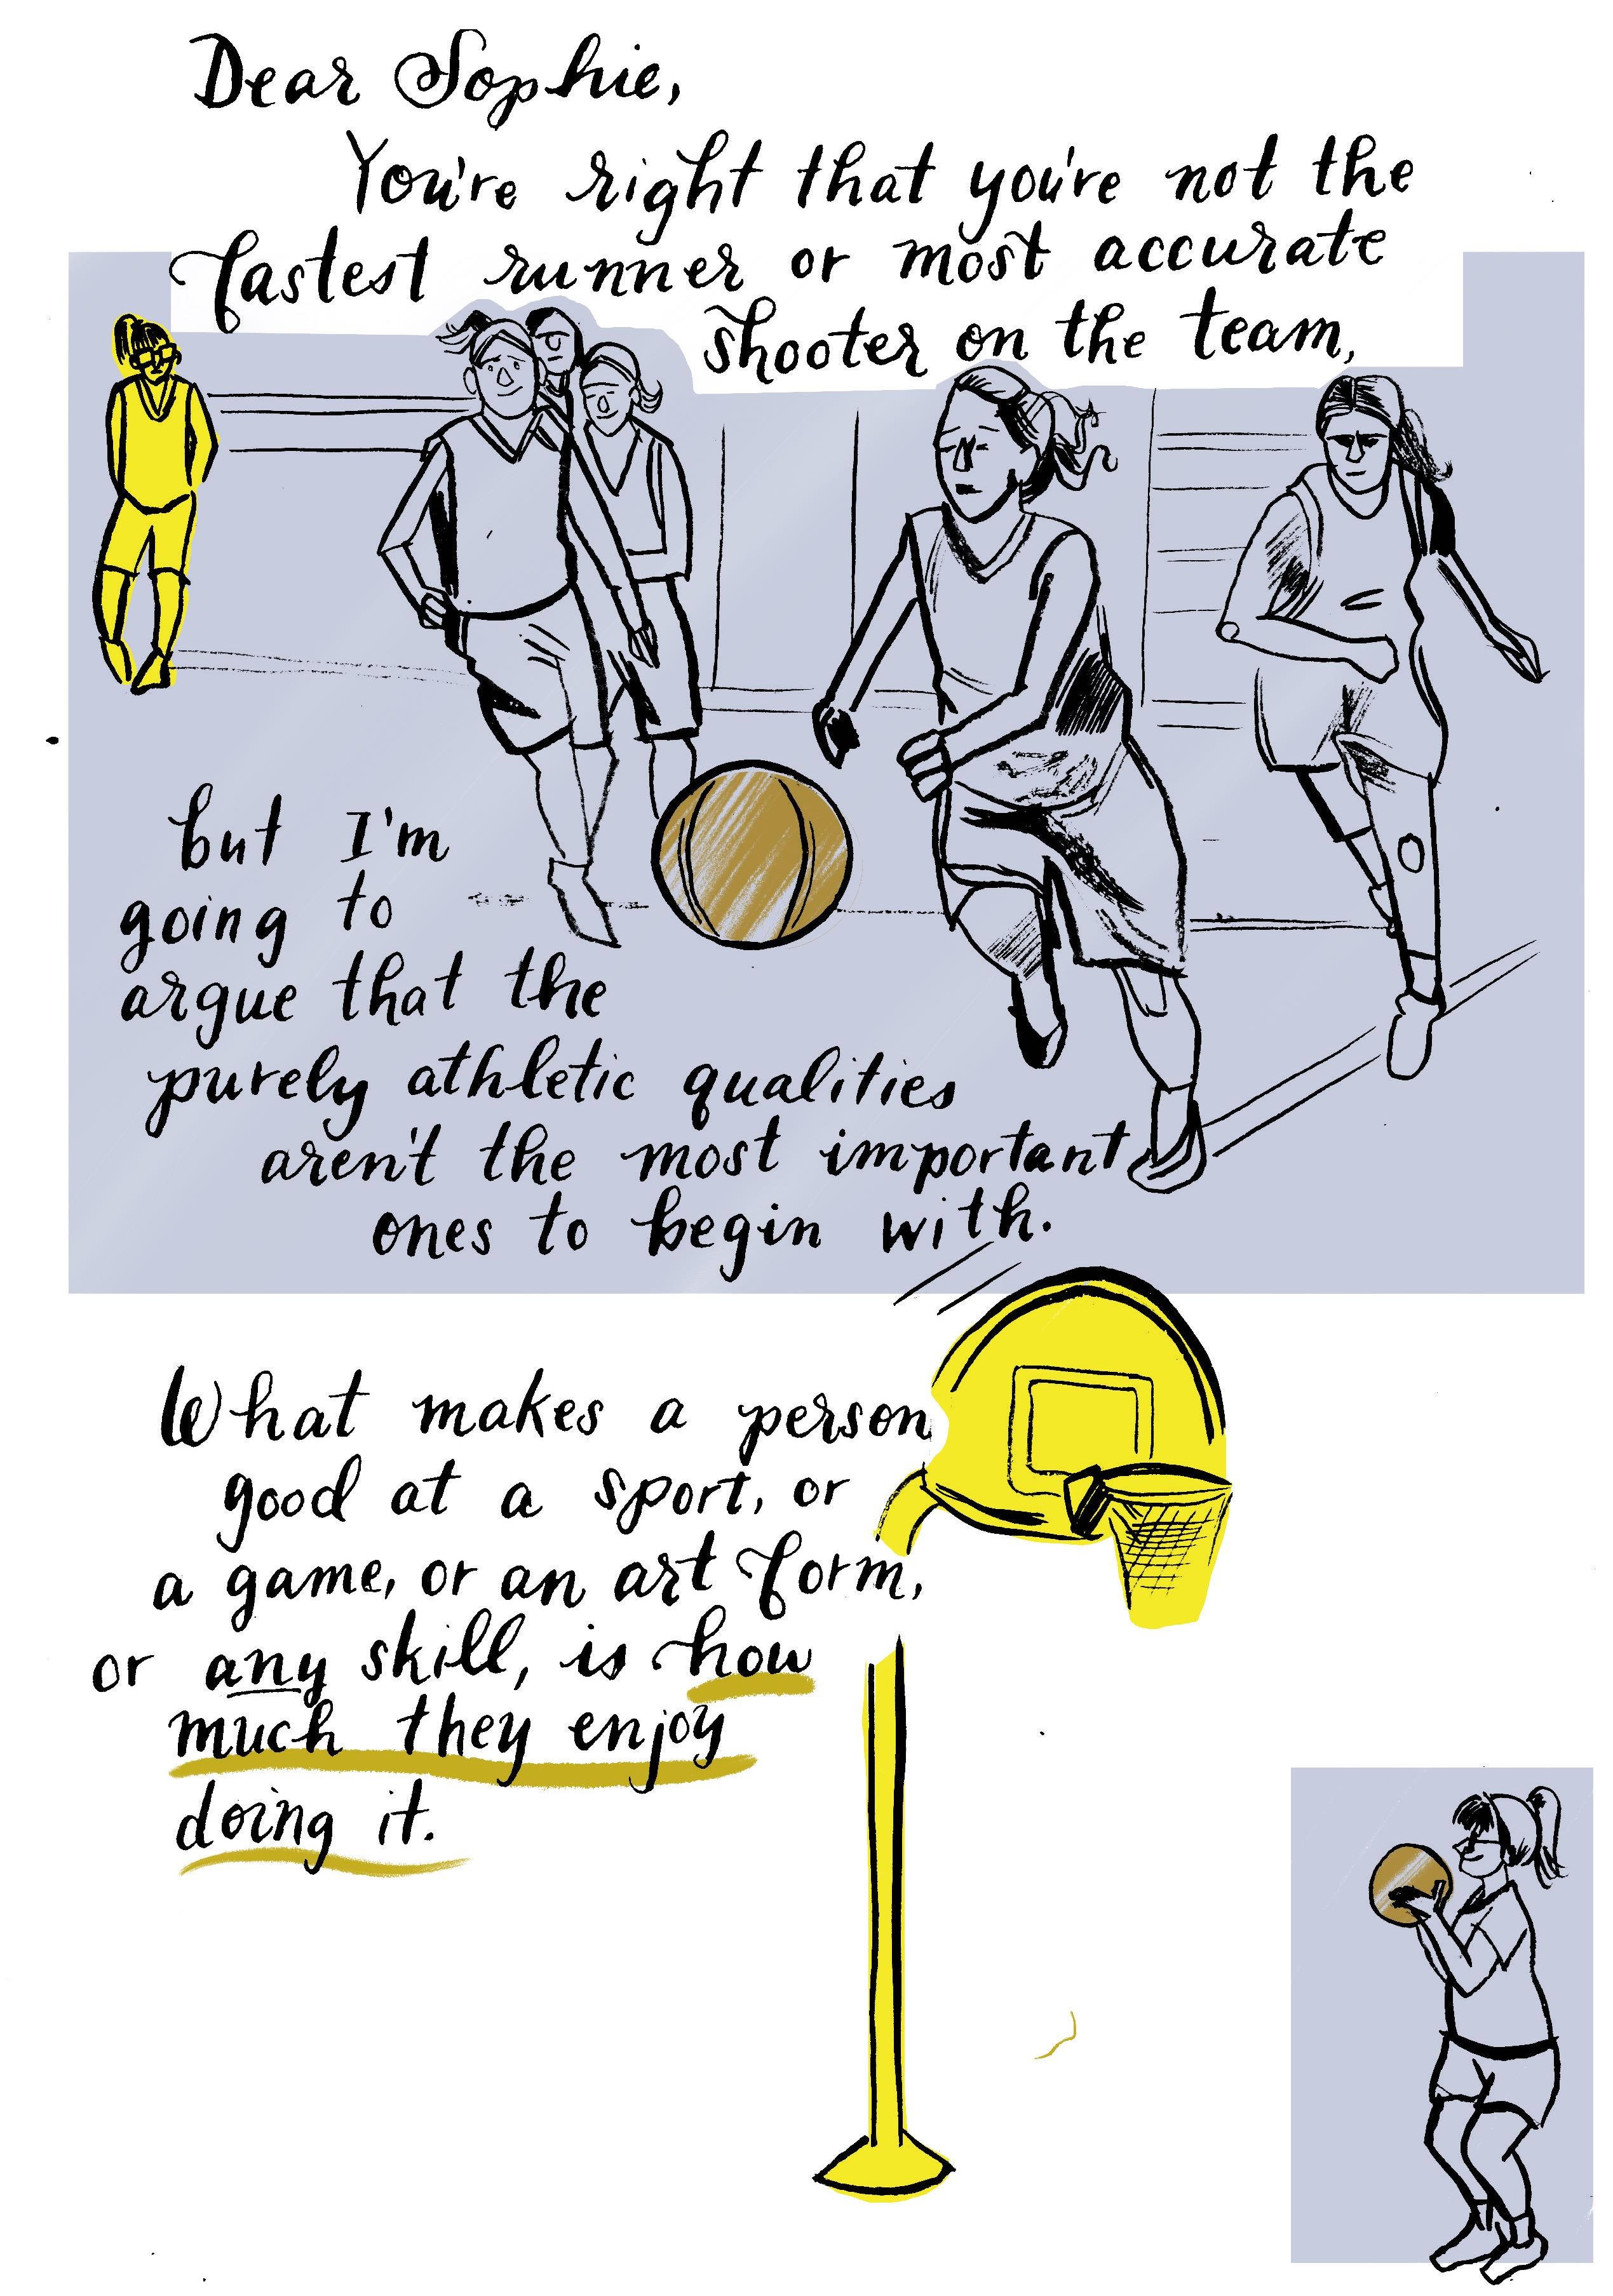 Dear Sophie,
You're right that you're not the
fastest runner or most accurate
shooter on the team,
but I'm
going to
argue that the
purely athletic qualities
aren't the most important
ones to begin with.
What makes a person
good at a sport, or
a game, or an art form,
or any skill, is how
much they enjoy
doing it.